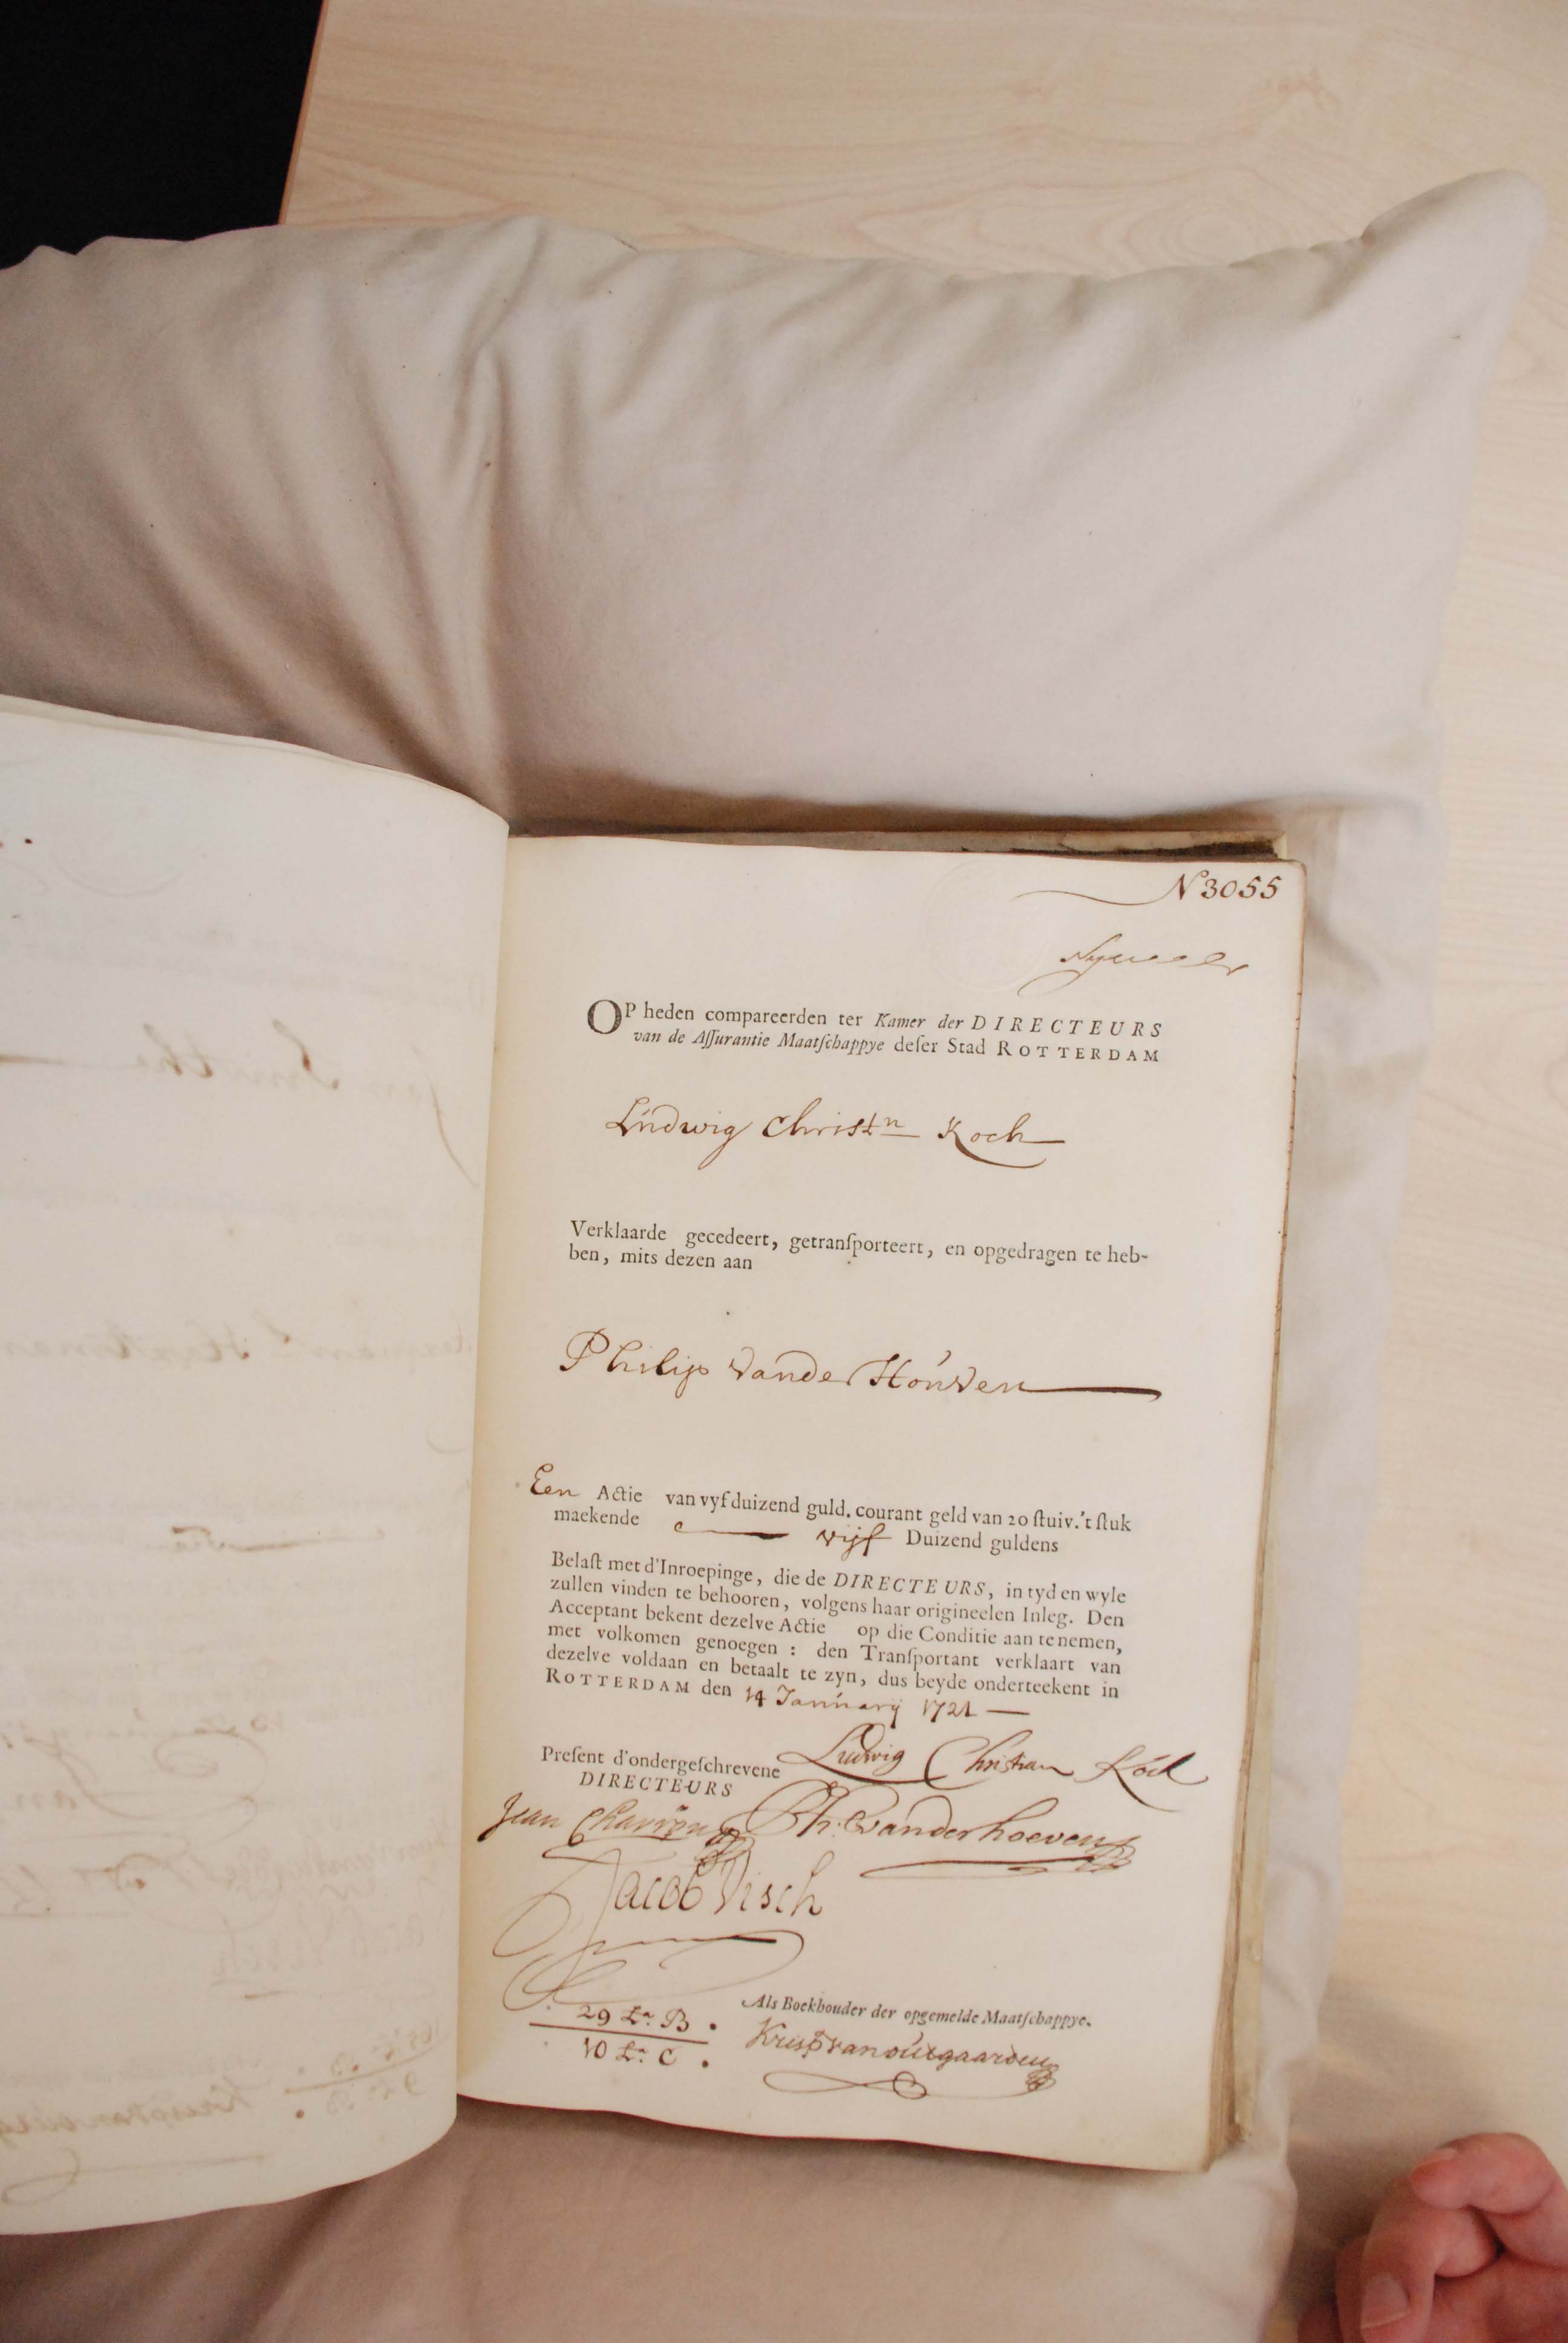 N 3055
OP heden compareerden ter Kamer der DIRECTEURS
van de Aſſurantie Maatſchappye deſer Stad ROTTERDAM
Ludwig Christn Koch
Verklaarde gecedeert, getranſporteert, en opgedragen te heb-
ben, mits dezen aan
Philip vander Houven
Een Actie van vyf duizend guld. courant geld van 20 ſtuiv. 't ſtuk
maekende vijf Duizend guldens
Belaſt met d'Inroepinge, die de DIRECTEURS, in tyd en wyle
zullen vinden te behooren, volgens haar origineelen Inleg. Den
Acceptant bekent dezelve Actie op die Conditie aan te nemen,
met volkomen genoegen : den Tranſportant verklaart van
dezelve voldaan en betaalt te zyn, dus beyde onderteekent in
ROTTERDAM den 14 January 1721
Preſent d'ondergeſchrevene Ludwig Christian Koch
DIRECTEURS
Jean Charron Ph. vanderhoeven
Jacob Visch
29 Lr. B.
10 Lr. C.
Als Boekhouder der opgemelde Maatſchappye.